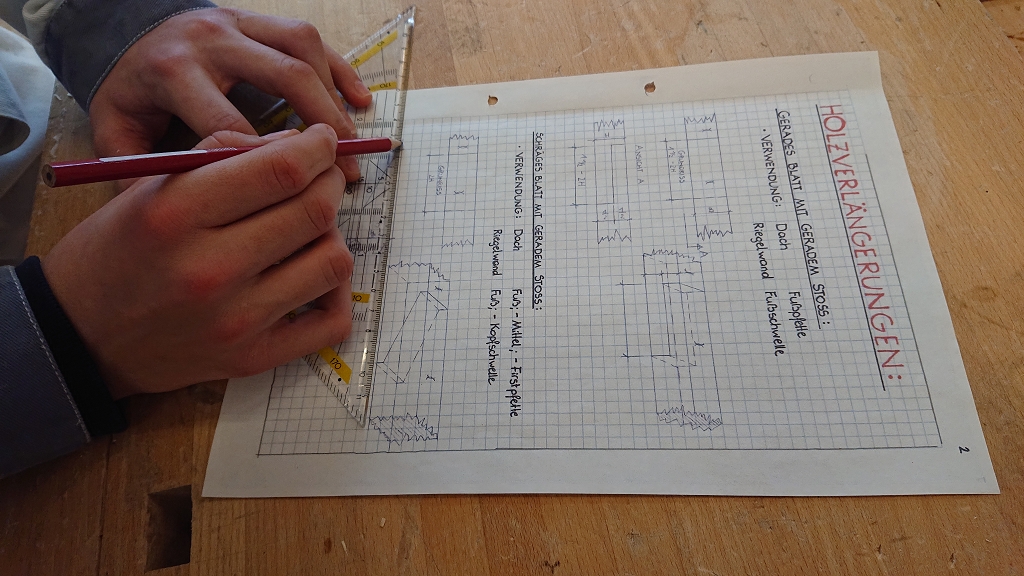 2
HOLZVERLÄNGERUNGEN:
GERADES BLATT MIT GERADEM STOSS:
• VERWENDUNG: Dach Fußpfette
Riegelwand Fußschwelle
GRUNDRISS
ANSICHT A
SCHRÄGES BLATT MIT GERADEM STOSS:
• VERWENDUNG: Dach Fuß,- Mittel,- Firstpfette
Riegelwand Fuß,- Kopfschwelle
GRUNDRISS
2H